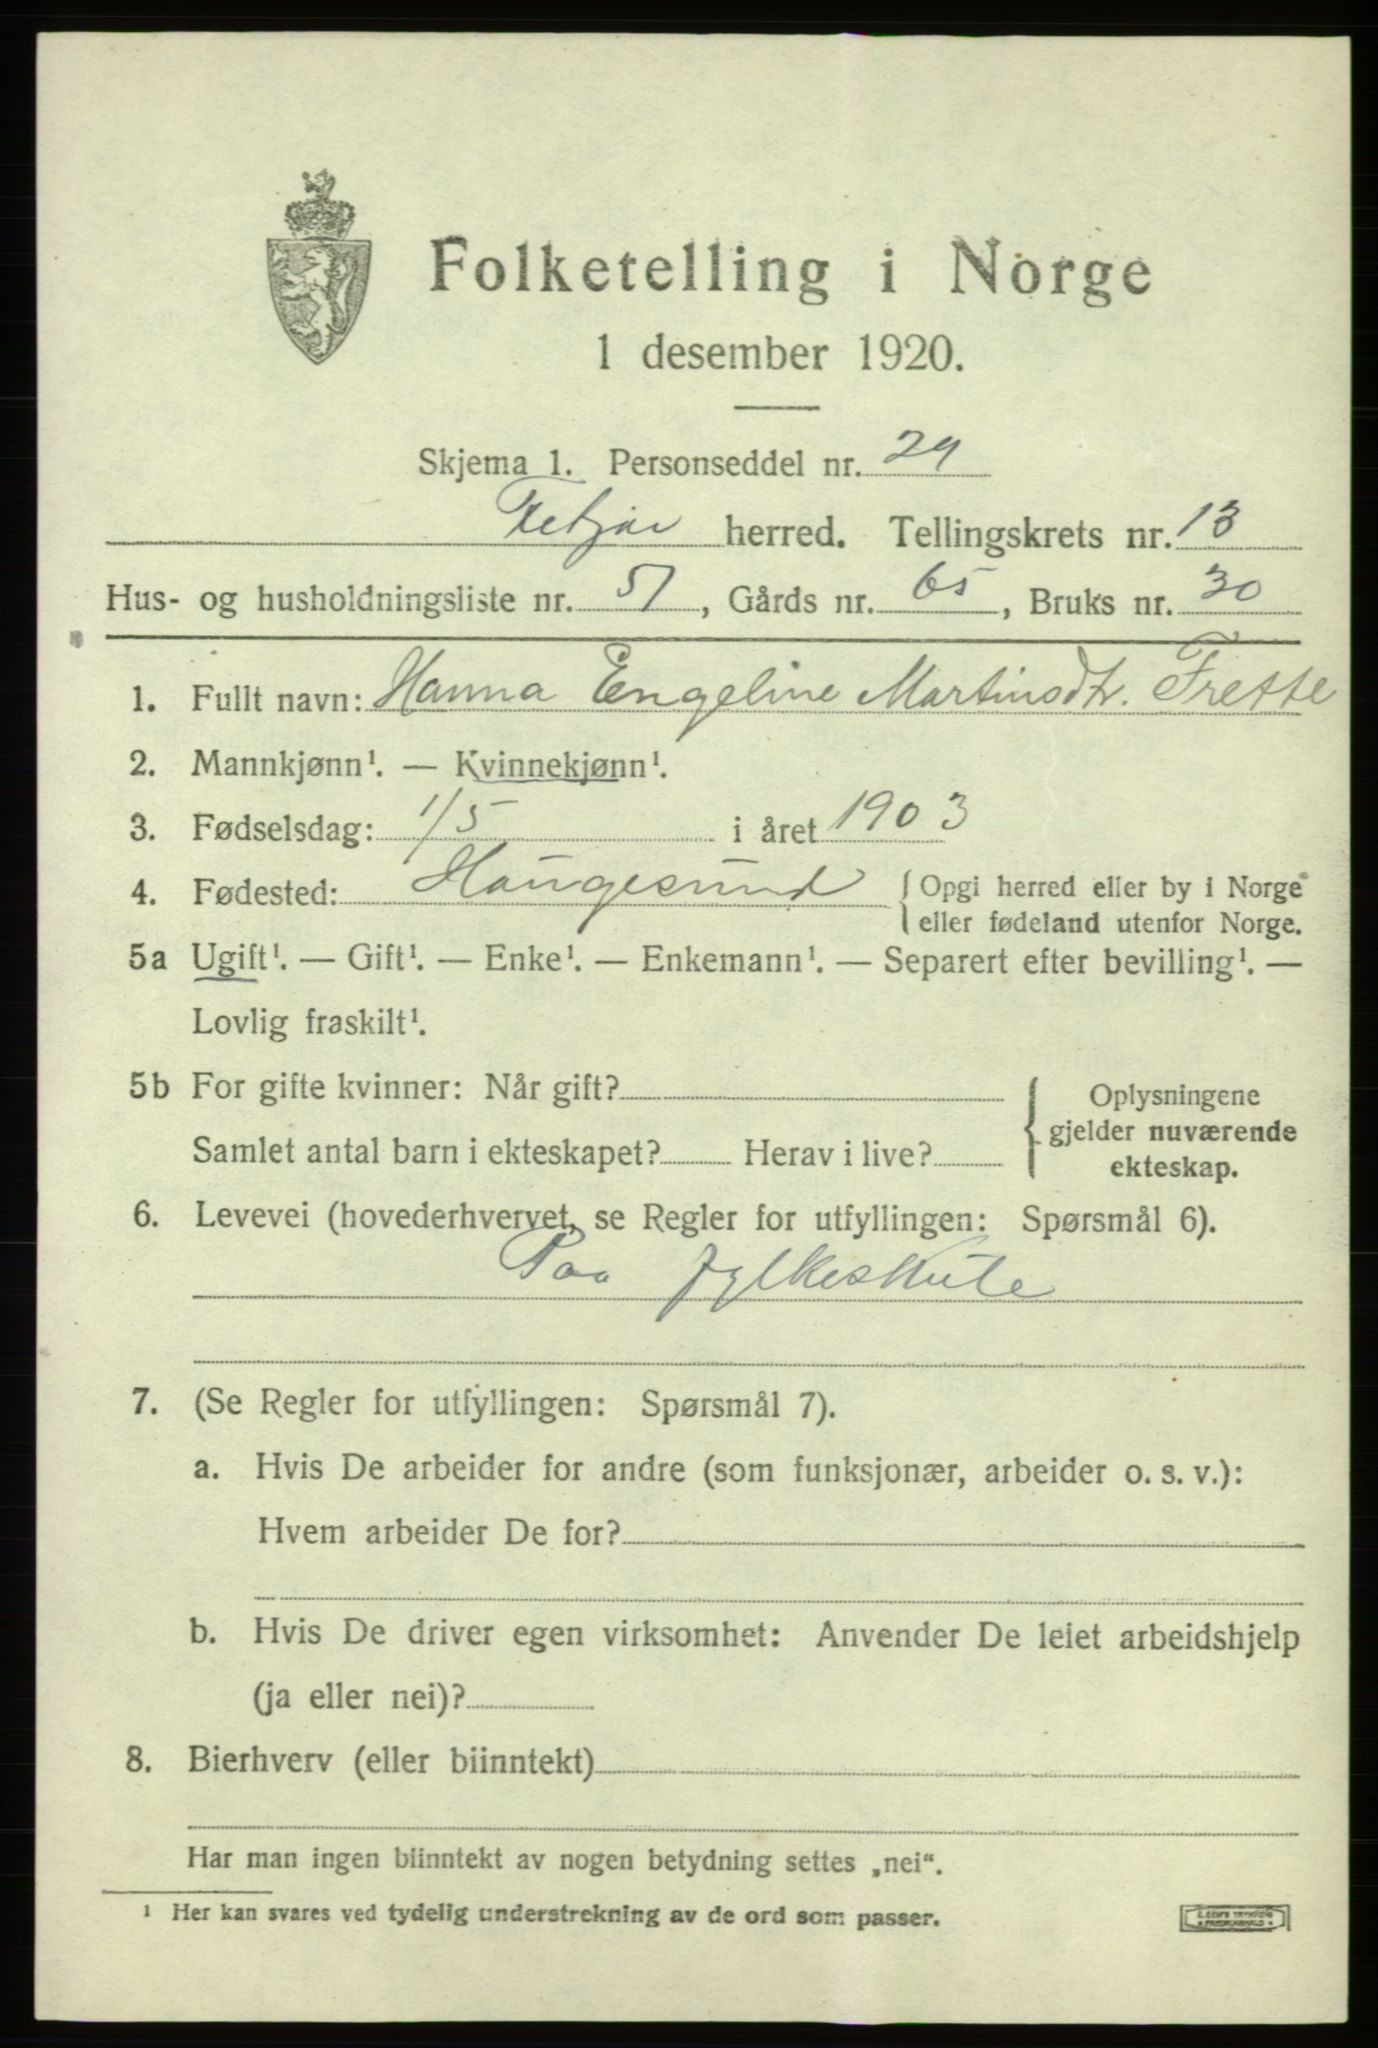 Folketelling i Norge
1 desember 1920.
Skjema 1. Personseddel nr. 24
Fitjar herred. Tellingskrets nr. 13
Hus- og husholdningsliste nr. 51, Gårds nr. 65, Bruks nr. 30
1. Fullt navn: Hanna Engeline Martinsdtr. Frette
2. Mannkjønn¹. — Kvinnekjønn¹.
3. Fødselsdag: 1/5 i året 1903
4. Fødested: Haugesund { Opgi herred eller by i Norge
eller fødeland utenfor Norge.
5a Ugift¹. — Gift¹. — Enke¹. — Enkemann¹. — Separert efter bevilling¹. —
Lovlig fraskilt¹.
5b For gifte kvinner: Når gift?
Samlet antal barn i ekteskapet? Herav i live?
Oplysningene
gjelder nuværende
ekteskap.
6. Levevei (hovederhvervet, se Regler for utfyllingen: Spørsmål 6).
Paa fylkeskule
7. (Se Regler for utfyllingen: Spørsmål 7).
a. Hvis De arbeider for andre (som funksjonær, arbeider o. s. v.):
Hvem arbeider De for?
b. Hvis De driver egen virksomhet: Anvender De leiet arbeidshjelp
(ja eller nei)?
8. Bierhverv (eller biinntekt)
Har man ingen biinntekt av nogen betydning settes „nei“.
¹ Her kan svares ved tydelig understrekning av de ord som passer.